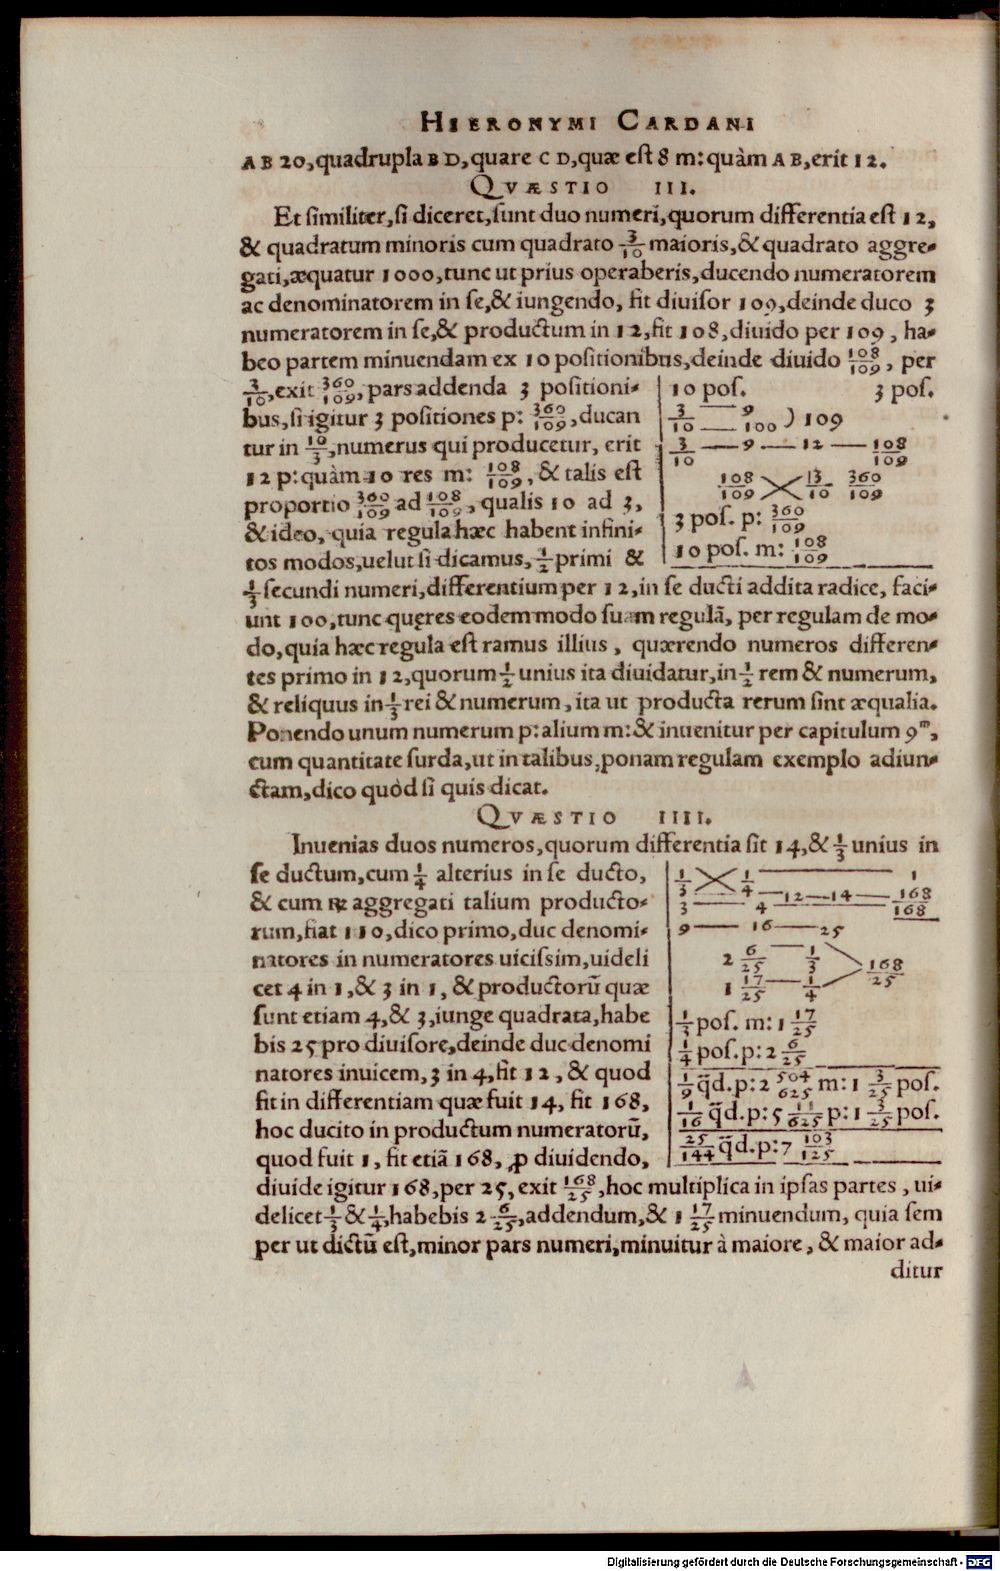 HIERONYMI CARDANI
AB 20, quadrupla BD, quare CD, quæ est 8 m: quàm AB, erit 12.
QVÆSTIO III.
Et similiter, si diceret, sunt duo numeri, quorum differentia est 12,
& quadratum minoris cum quadrato 3/10 maioris, & quadrato aggre-
gati, æquatur 1000, tunc ut prius operaberis, ducendo numeratorem
ac denominatorem in se, & iungendo, fit diuisor 109, deinde duco 3
numeratorem in se, & productum in 12, fit 108, diuido per 109, ha-
beo partem minuendam ex 10 positionibus, deinde diuido 108/109, per
3/10, exit 360/109, pars addenda 3 positioni-
bus, si igitur 3 positiones p: 360/109, ducan
tur in 10/3, numerus qui producetur, erit
12 p: quàm 10 res m: 108/109, & talis est
proportio 360/109 ad 108/109, qualis 10 ad 3,
& ideo, quia regula hæc habent infini-
tos modos, uelut si dicamus, 1/2 primi &
10 pos. 3 pos.
3/10 — 9/100 ) 109
3/10 — 9 — 12 — 108/109
108/109 13/10 360/109
3 pos. p: 360/109
10 pos. m: 108/109
1/3 secundi numeri, differentium per 12, in se ducti addita radice, faci-
unt 100, tunc quęres eodem modo suam regulã, per regulam de mo-
do, quia hæc regula est ramus illius, quærendo numeros differen-
tes primo in 12, quorum 1/2 unius ita diuidatur, in 1/2 rem & numerum,
& reliquus in 1/3 rei & numerum, ita ut producta rerum sint æqualia.
Ponendo unum numerum p: alium m: & inuenitur per capitulum 9ᵐ,
cum quantitate surda, ut in talibus, ponam regulam exemplo adiun-
ctam, dico quòd si quis dicat.
QVÆSTIO IIII.
Inuenias duos numeros, quorum differentia sit 14, & 1/3 unius in
se ductum, cum 1/4 alterius in se ducto,
& cum ℞ aggregati talium producto-
rum, fiat 110, dico primo, duc denomi-
natores in numeratores uicissim, uideli
cet 4 in 1, & 3 in 1, & productorũ quæ
sunt etiam 4, & 3, iunge quadrata, habe
bis 25 pro diuisore, deinde duc denomi
natores inuicem, 3 in 4, fit 12, & quod
fit in differentiam quæ fuit 14, fit 168,
hoc ducito in productum numeratorũ,
quod fuit 1, fit etiã 168, ꝓ diuidendo,
1/3 1/4 — 1
3 — 4 — 12 — 14 — 168/168
9 — 16 — 25
2 6/25 1/3
168/25
1 17/25 — 1/4
1/3 pos. m: 1 17/25
1/4 pos. p: 2 6/25
1/9 q̃d. p: 2 504/625 m: 1 3/25 pos.
1/16 q̃d. p: 5 11/625 p: 1 3/25 pos.
25/144 q̃d. p: 7 103/125
diuide igitur 168, per 25, exit 168/25, hoc multiplica in ipsas partes, ui-
delicet 1/3 & 1/4, habebis 2 6/25, addendum, & 1 17/25 minuendum, quia sem
per ut dictũ est, minor pars numeri, minuitur à maiore, & maior ad-
ditur
Digitalisierung gefördert durch die Deutsche Forschungsgemeinschaft - DFG